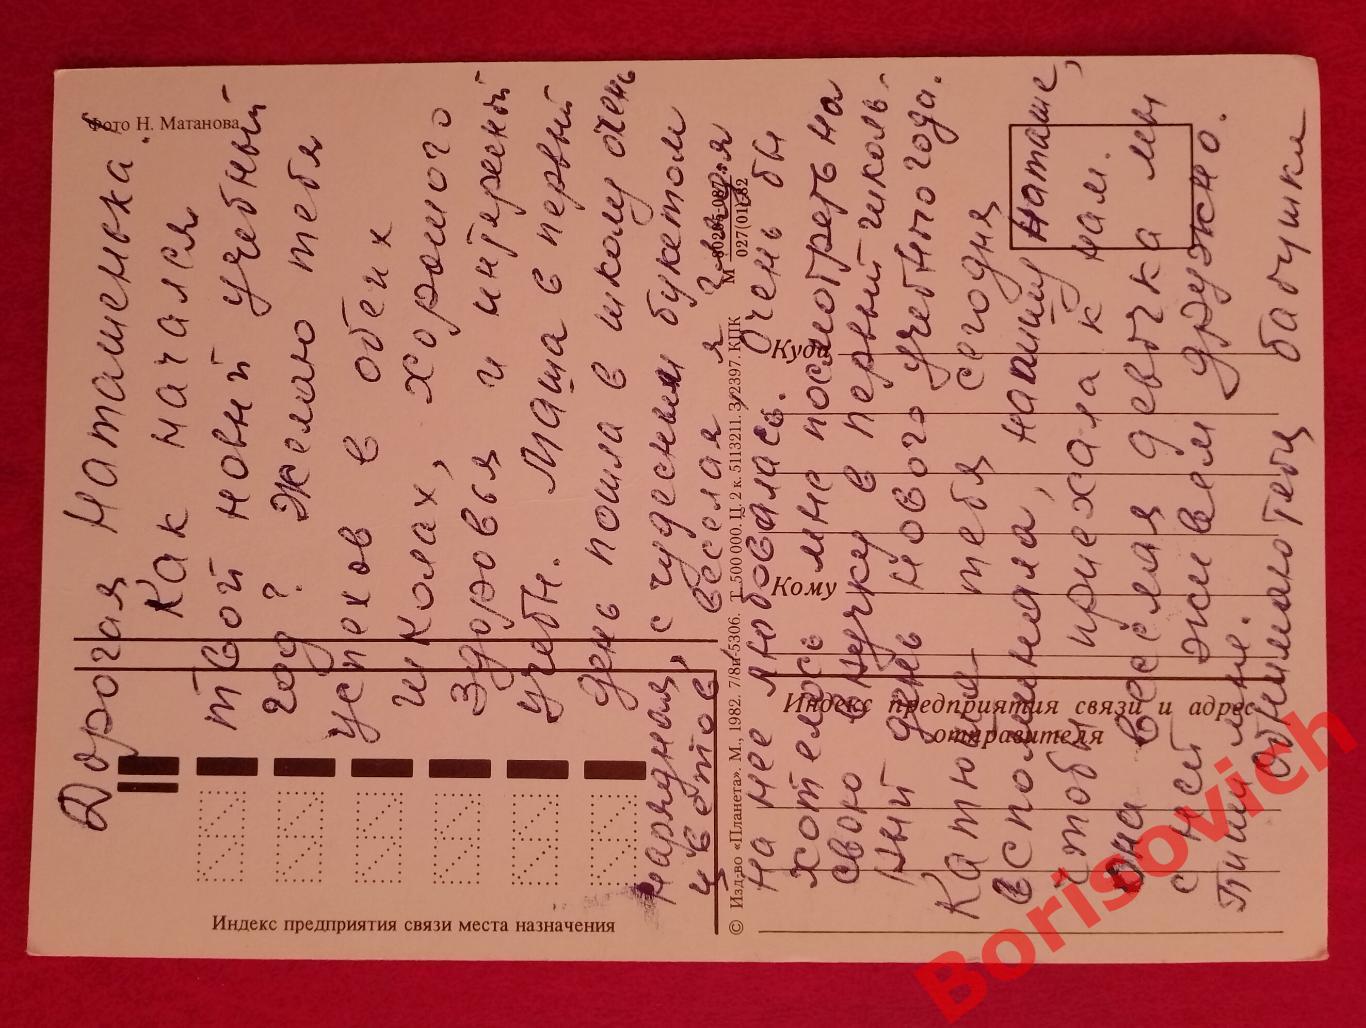 Фото Н. Матанова
Дорогая Наташенька.
Как начался
твой новый учебный
год? Желаю тебя
успехов в обеих
школах, хорошого
здоровья и интересной
учебн. Маша в первый
день пошла в школу очень
нарядная, с чудесным букетом
цветов, веселая я
На нее любовалась. Очень бы
хотелось мне посмотреть на
свою внучку в первый школь-
ный день нового учебного года.
Катюша тебя сегодня
вспоминала, напишу Наташе,
чтобы приехала к нам.
Она весёлая девочка а мы
с ней живем дружно.
Пиши мне.
Обнимаю тебя бабушка
М 80205-087
027(01)-82
© Изд-во «Планета». М., 1982. 7/8и-5306. Т. 500 000. Ц. 2 к. 5113211. З/2397. КПК
Куда
Кому
Индекс предприятия связи и адрес
отправителя
Индекс предприятия связи места назначения
Borisovich